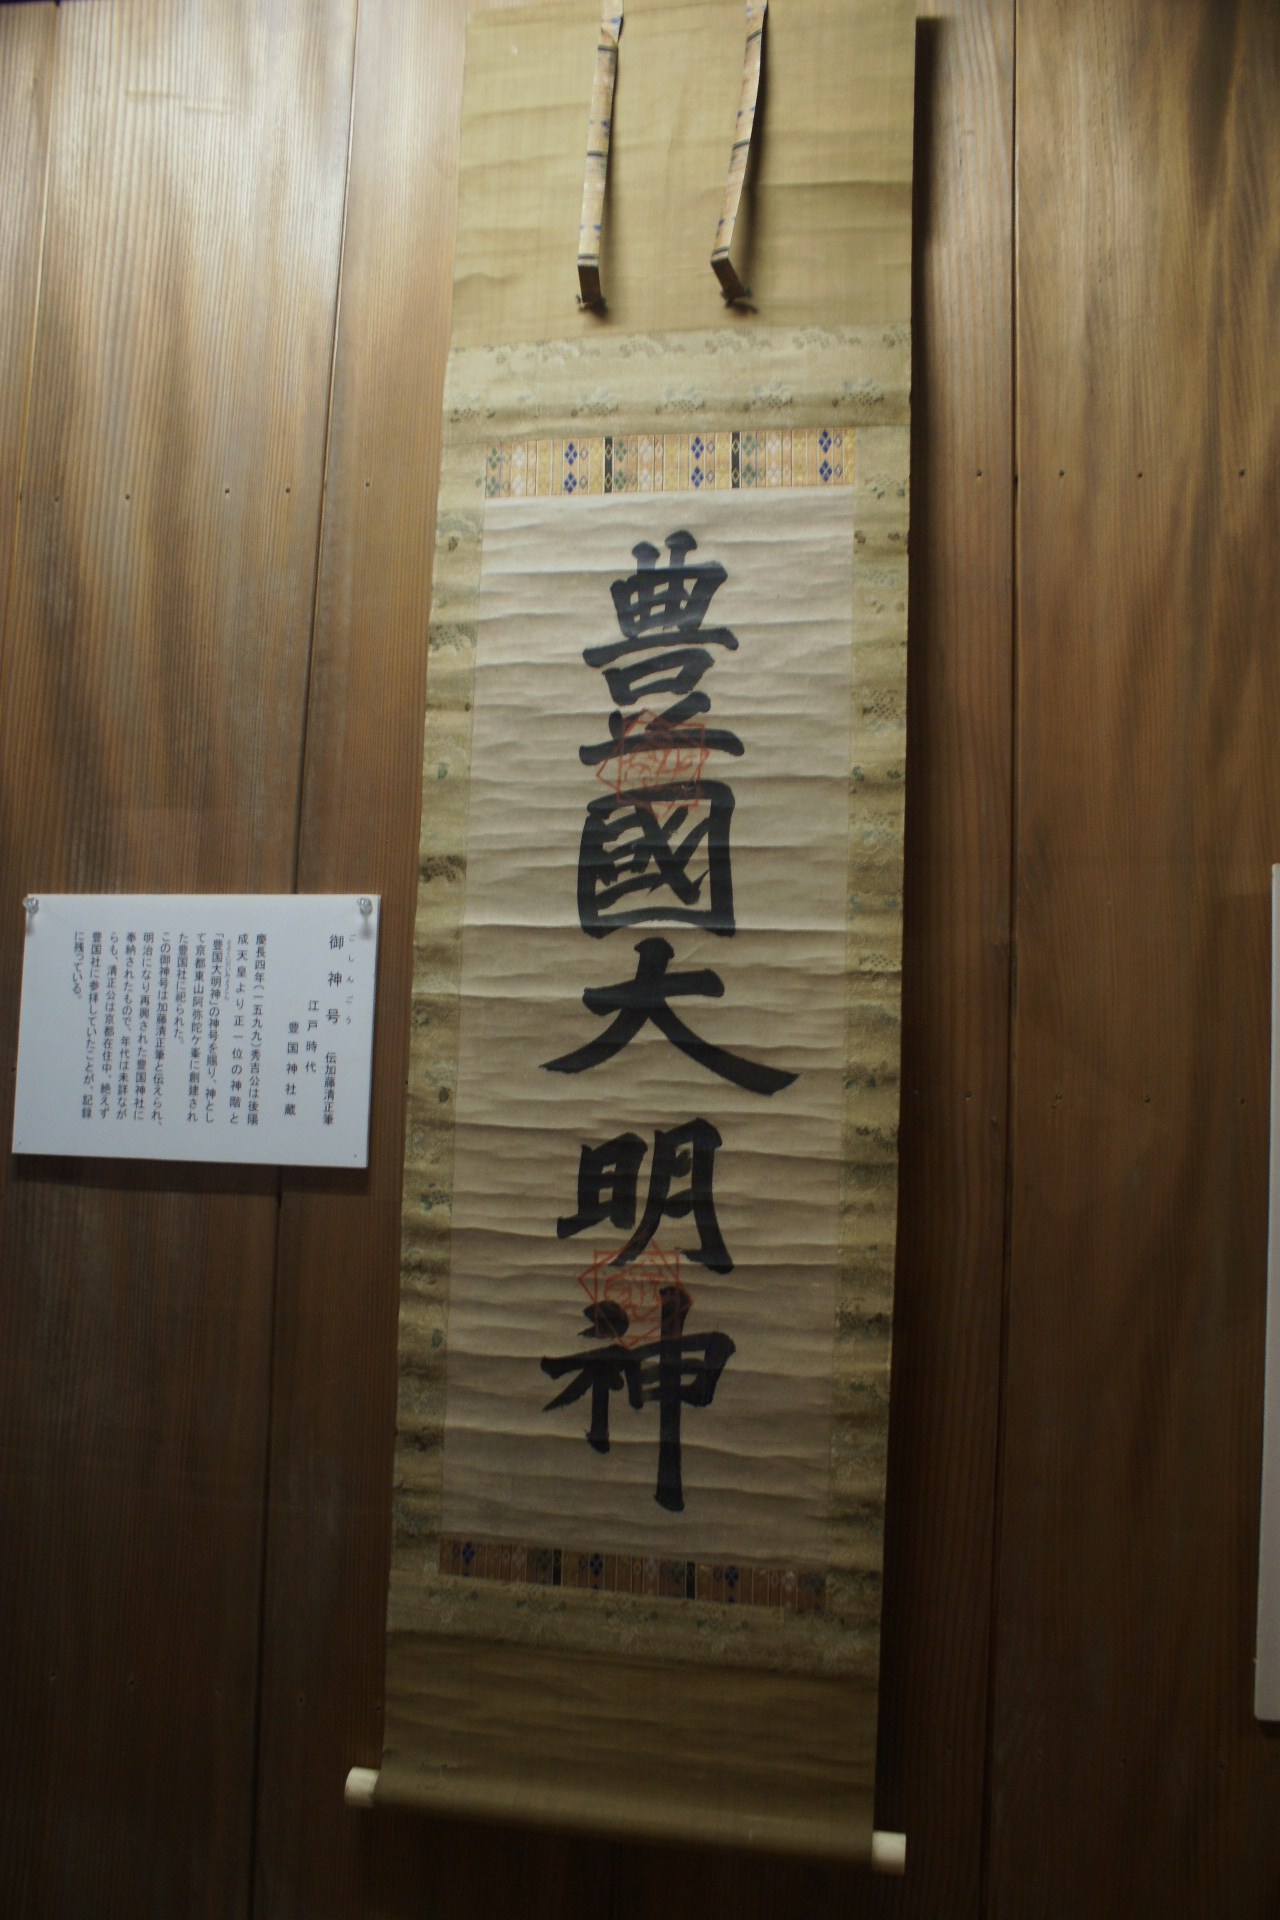 豊國大明神
ごしんごう
御神号 伝加藤清正筆
江戸時代
豊国神社蔵
慶長四年(一五九九)秀吉公は後陽
成天皇より正一位の神階と
「豊国大明神」の神号を賜り、神とし
て京都東山阿弥陀ケ峯に創建され
た豊国社に祀られた。
この御神号は加藤清正筆と伝えられ、
明治になり再興された豊国神社に
奉納されたもので、年代は未詳なが
らも、清正公は京都在住中、絶えず
豊国社に参拝していたことが、記録
に残っている。